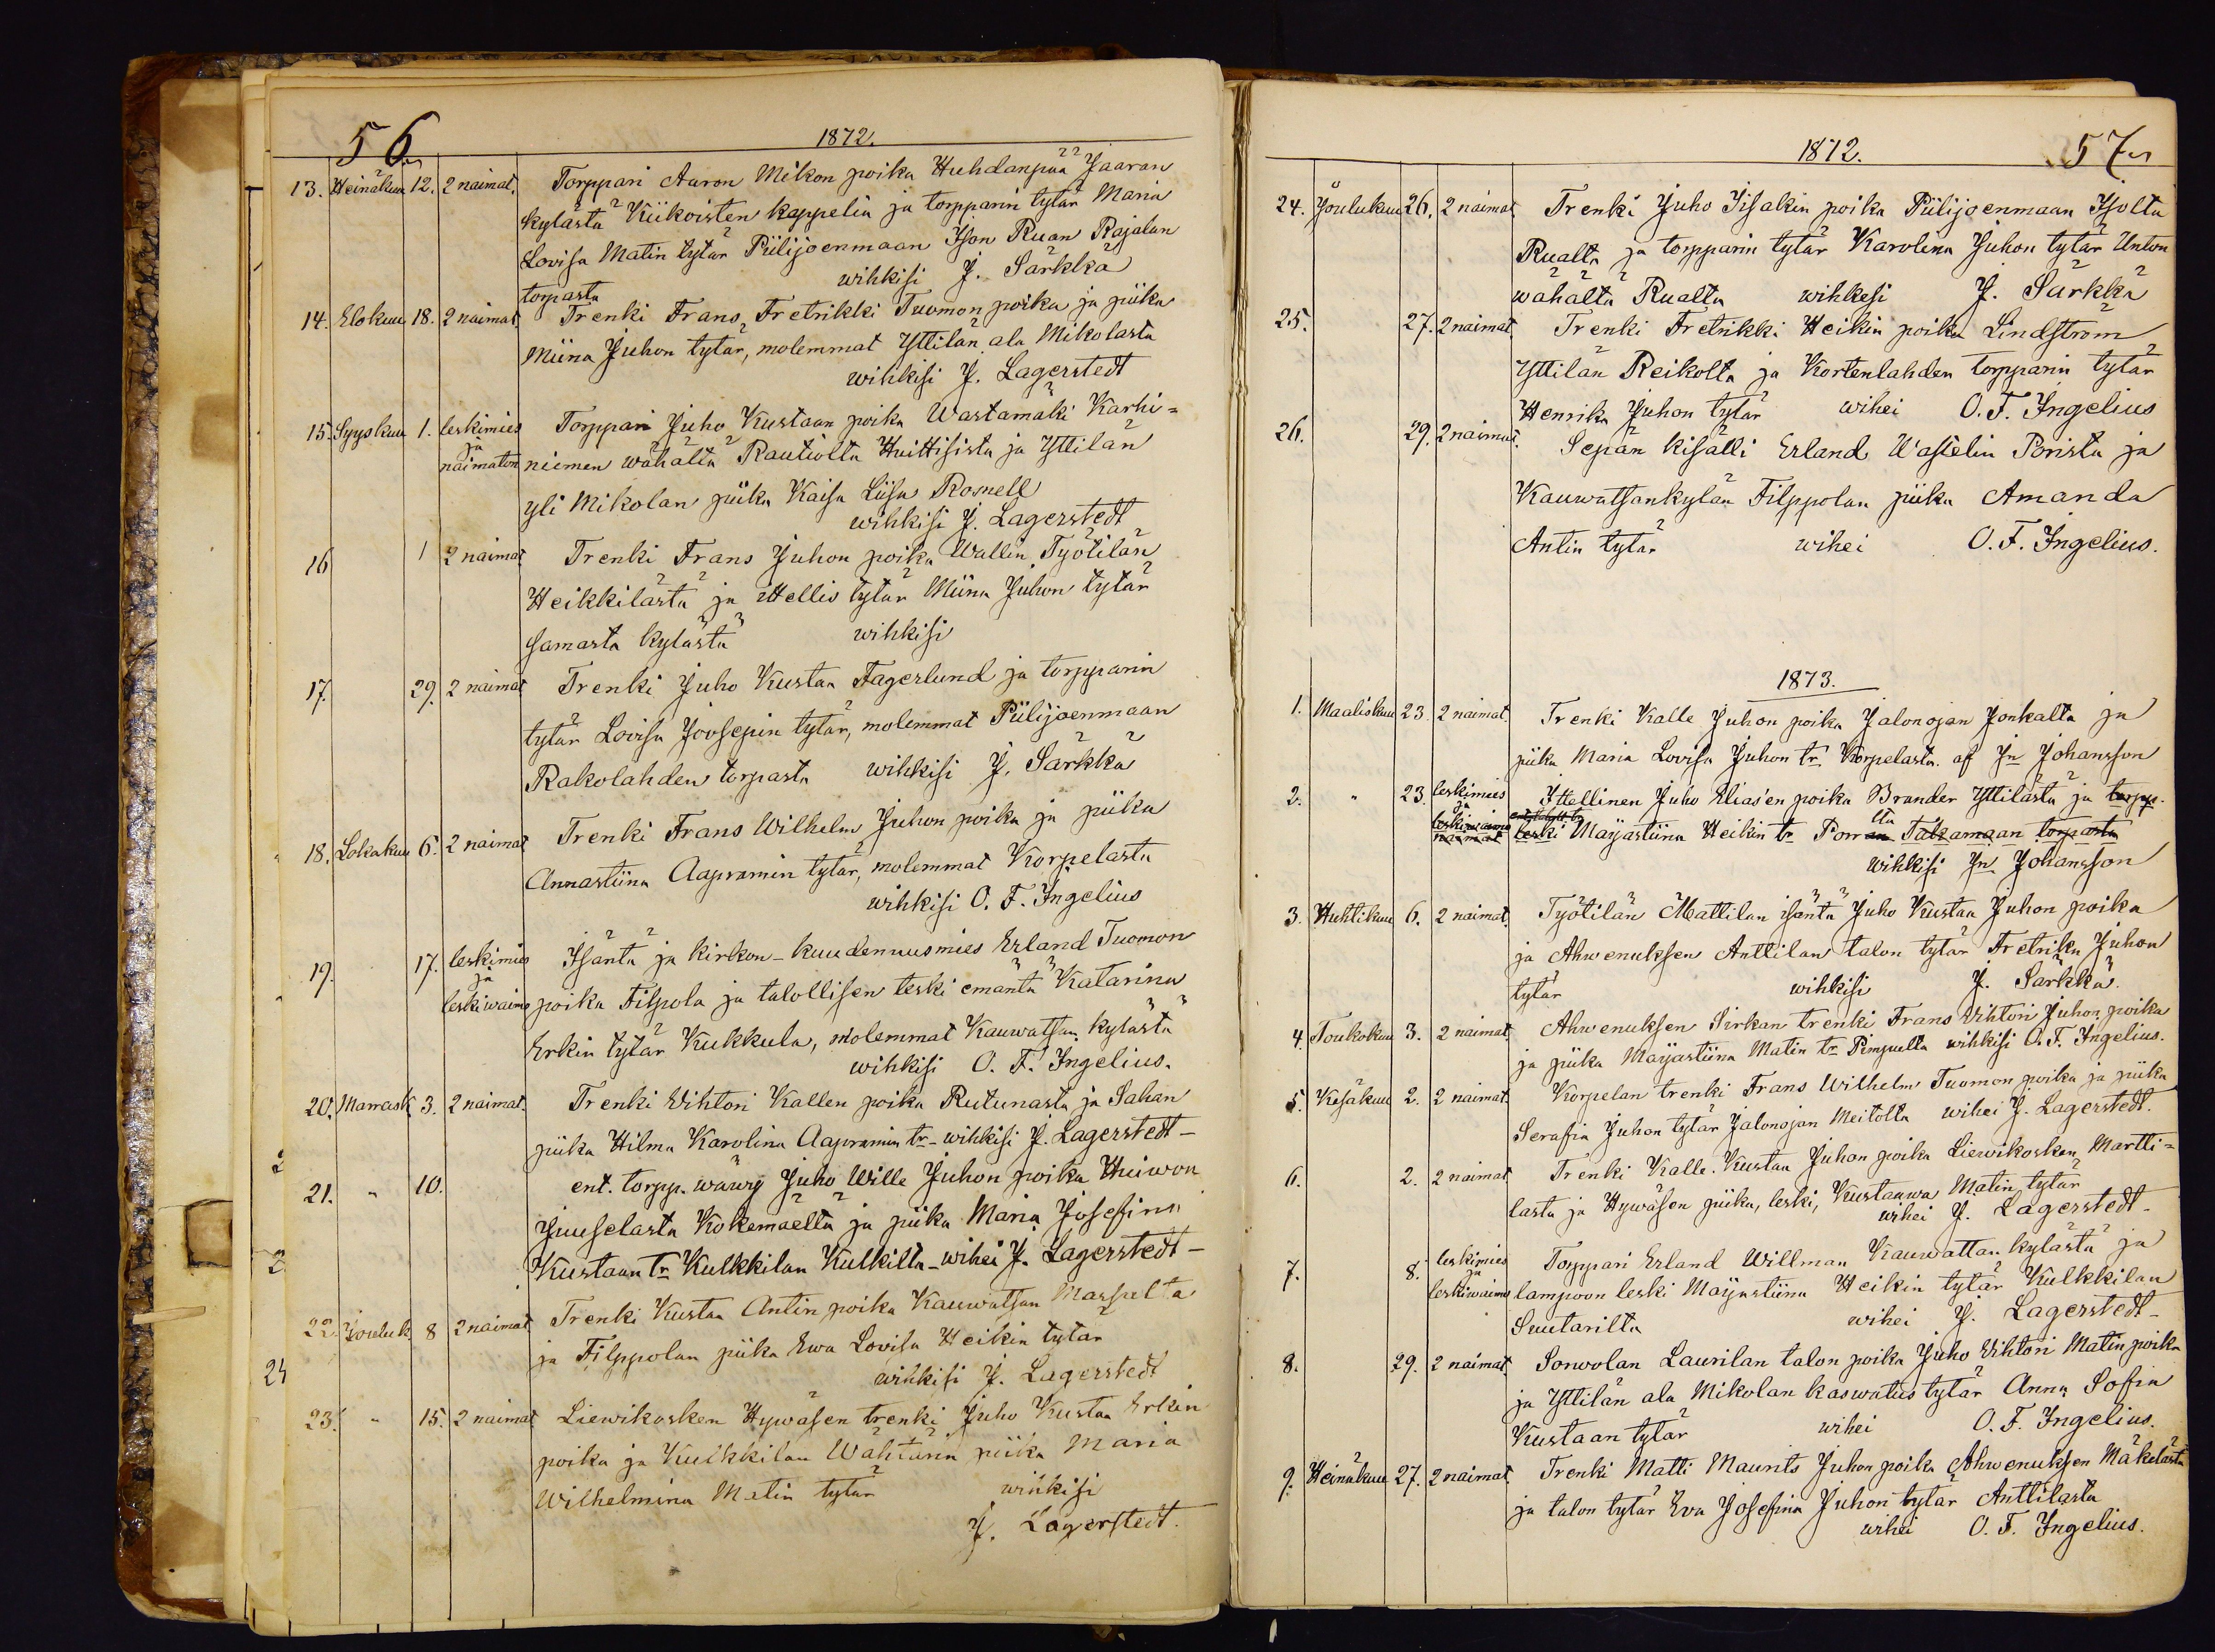 56
1872.
13. Heinäkuu 12. 2 naimat. Torppari Aaron Mikon poika Huhdanpää Jaaran
kylästä Kiikoisten kappelia ja torpparin tytär Maria
Lovisa Matin tytär Piilijoenmaan Ison Ruan Rajalan
torpasta wihkisi J. Särkkä
14. Elokuu 18. 2 naimat. Trenki Frans Fretrikki Tuomon poika ja piika
Miina Juhon tytär, molemmat Yttilän ala Mikolasta
wihkisi J. Lagerstedt
15. Syyskuu 1. leskimies Torppari Juho Kustaan poika Wastamäki Karhi=
ja
naimaton niemen wähältä Rautiolta Huittisista ja Yttilän
yli Mikolan piika Kaisa Liisa Rosnell
wihkisi J. Lagerstedt
16 1 2 naimat Trenki Frans Juhon poika Wallin Työtilän
Heikkilästä ja Itellis tytär Miina Juhon tytär
samasta kylästä wihkisi
17. 29. 2 naimat Trenki Juho Kustaa Fagerlund ja torpparin
tytär Lovisa Joosepin tytär, molemmat Piilijoenmaan
Rakolahden torpasta wihkisi J. Särkkä
18. Lokakuu 6. 2 naimat Trenki Frans Wilhelm Juhon poika ja piika
Annastiina Aapramin tytär, molemmat Korpelasta
wihkisi O. F. Ingelius
19. 17. leskimies Isäntä ja kirkon-kuudennusmies Erland Tuomon
ja
leskiwaimo poika Filpola ja talollisen leski emäntä Katarina
Erkin tytär Kukkula, molemmat Kauwatsan kylästä
wihkisi O. F. Ingelius.
20. Marrask 3. 2 naimat. Trenki Wihtori Kallen poika Rutunasta ja Sahan
piika Hilma Karolina Aapramin tr- wihkisi J. Lagerstedt-
21. " 10. ent. torpp. wäwy Juho Wille Juhon poika Huiwon
Juuselasta Kokemäeltä ja piika Maria Josefina
Kustaan tr Kulkkilan Kulkilta- wihei J. Lagerstedt-
22. Jouluk 8 2 naimat Trenki Kustaa Antin poika Kauwatsan Marsulta
ja Filppolan piika Ewa Lovisa Heikin tytär
wihkisi J. Lagerstedt
23. " 15. 2 naimat Liewikosken Hywäsen trenki Juho Kustaa Erkin
poika ja Kulkkilan Wähtärin piika Maria
Wilhelmina Matin tytär wihkisi
J. Lagerstedt.
1872. 57
24. Joulukuu 26. 2 naimat Trenki Juho Iisakin poika Piilijoenmaan Isolta
Rualta ja torpparin tytär Karolina Juhon tytär Unton
wähältä Rualta wihkesi J. Särkkä
25. 27. 2 naimat. Trenki Fretrikki Heikin poika Lindström
Yttilän Reikolta ja Kortenlahden torpparin tytär
Henrika Juhon tytär wihei O. F. Ingelius
26. 29. 2 naimat. Sepän kisälli Erland Wastelin Porista ja
Kauwatsankylän Filppolan piika Amanda
Antin tytär wihei O. F. Ingelius.
1873.
1. Maaliskuu 23. 2 naimat. Trenki Kalle Juhon poika Jalonojan Jonkalta ja
piika Maria Lovisa Juhon tr. Korpelasta. af Jn Johansson
2. " 23. leskimies Itellinen Juho Elias'en poika Brander Yttilästä ja torpp.
ja
leskiwaimo
naimat leski Maijastiina Heikin tr Porran Takamaan torpasta
wihkisi Jn Johansson
3. Huhtikuu 6. 2 naimat. Työtilän Mattilan isäntä Juho Kustaa Juhon poika
ja Ahwenuksen Anttilan talon tytär Fretrika Juhon
tytär wihkisi J. Särkkä.
4. Toukokuu 3. 2 naimat. Ahwenuksen Sirkan trenki Frans Wihtori Juhon poika
ja piika Maijastiina Matin tr Pimpulta wihkisi O. F. Ingelius.
5. Kesäkuu 2. 2 naimat. Korpelan trenki Frans Wilhelm Tuomon poika ja piika
Serafia Juhon tytär Jalonojan Meitolta wihei J. Lagerstedt.
6. 2. 2 naimat Trenki Kalle Kustaa Juhon poika Liewikosken Martti=
lasta ja Hywäsen piika, leski, Kustaawa Matin tytär
wihei J. Lagerstedt-
7. 8. leskimies Torppari Erland Willman Kauwattan kylästä ja
ja
leskiwaimo lampuon leski Maijastiina Heikin tytär Kulkkilan
Suutarilta wihei J. Lagerstedt-
8. 29. 2 naimat. Sonwolan Laurilan talon poika Juho Wihtori Matin poika
ja Yttilän ala Mikolan kaswatus tytär Anna Sofia
Kustaan tytär wihei O. F. Ingelius.
9. Heinäkuu 27. 2 naimat. Trenki Matti Maurits Juhon poika Ahwenuksen Mäkelästä
ja talon tytär Eva Josefina Juhon tytär Anttilasta
wihei O. F. Ingelius.